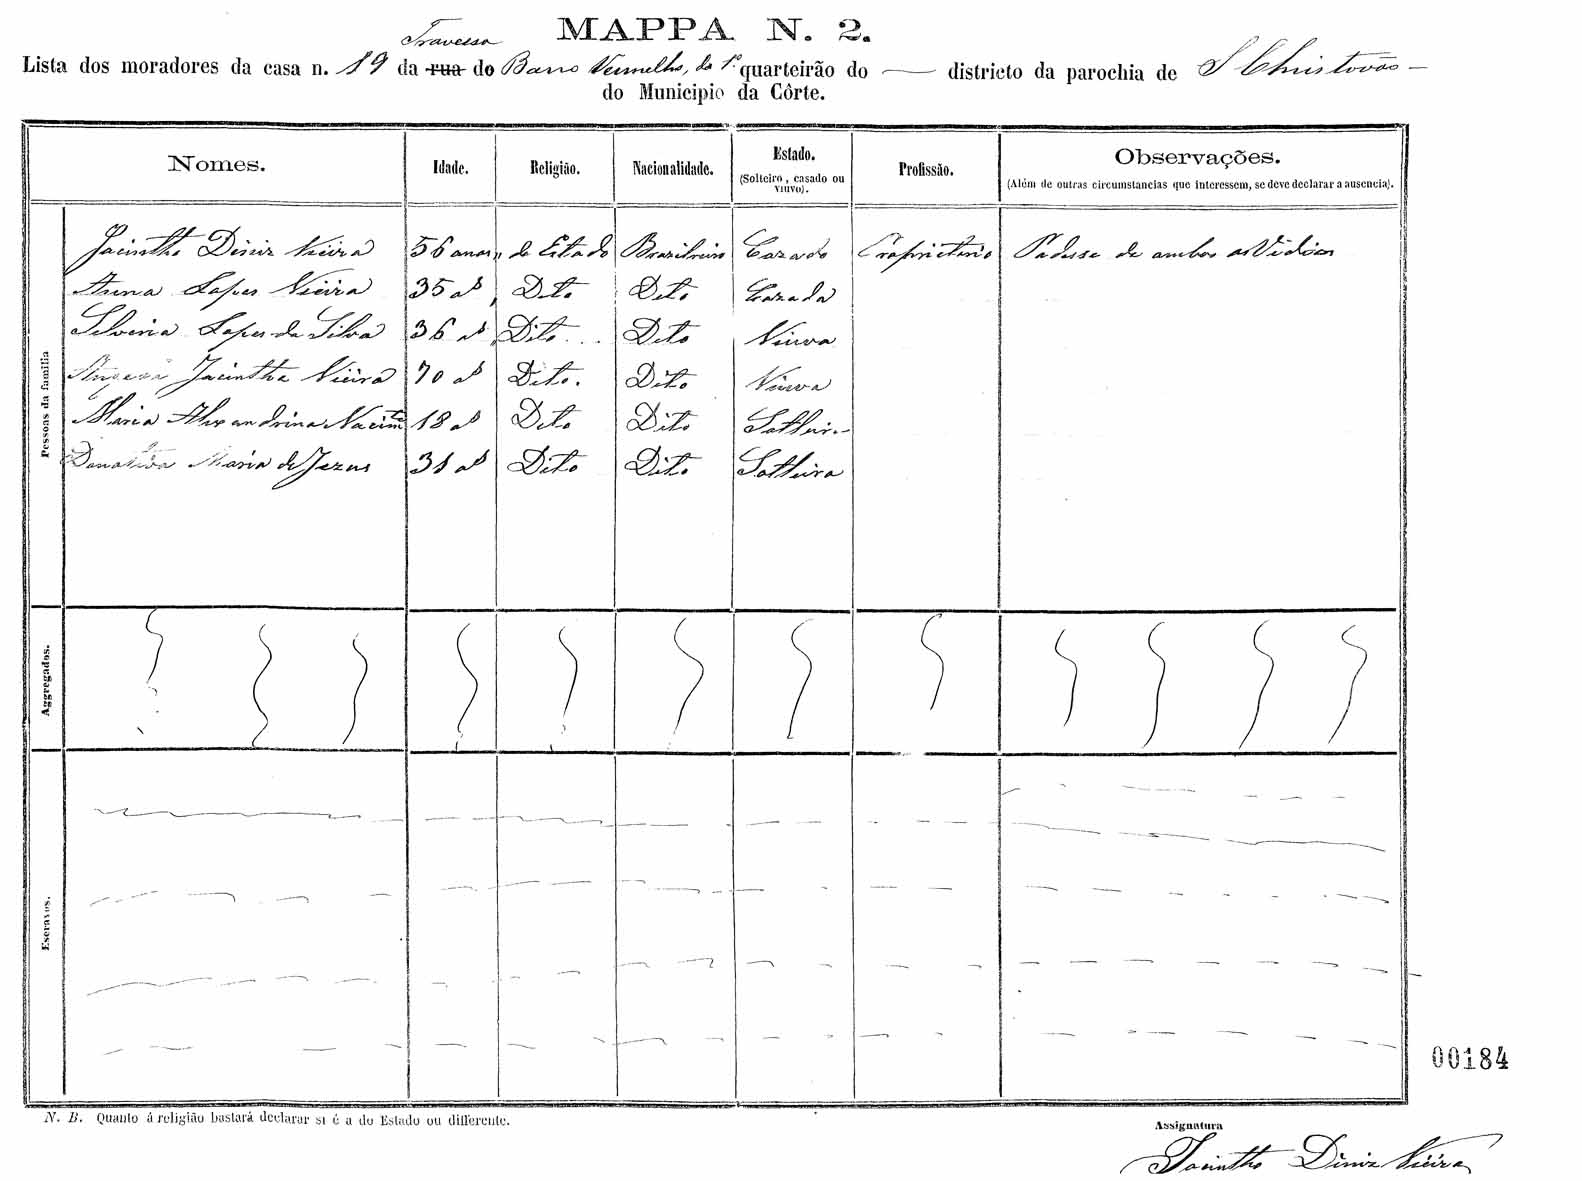 MAPPA N. 2.
Travessa
Lista dos moradores da casa n. 19 da rua do Barro Vermelho, do 1º quarteirão do — districto da parochia de S Christovão —
do Municipio da Côrte.
Nomes. Idade. Religião. Nacionalidade. Estado. (Solteiro, casado ou viuvo). Profissão. Observações. (Além de outras circumstancias que interessem, se deve declarar a ausencia).
Pessoas da familia
Jacintho Diniz Vieira 56 annos do Estado Brazileiro Cazado Proprietario Padesse de ambos as Vistas
Anna Lopes Vieira 35 as Dito Dito Cazada
Silveria Lopes da Silva 36 as Dito Dito Viuva
Jacintha Vieira 70 as Dito. Dito Viuva
Maria Alexandrina Nacimto 18 as Dito Dito Solteir
Donativa Maria de Jezus 31 as Dito Dito Solteira
Aggregados.
Escravos.
00184
N. B. Quanto á religião bastará declarar si é a do Estado ou differente.
Assignatura
Jacintho Diniz Vieira